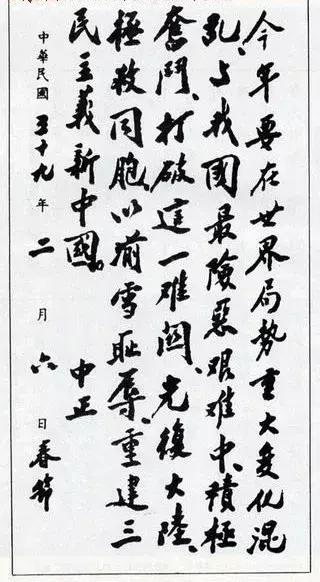 今年要在世界局勢重大变化混
乱、与我國最險惡艰难中、積極
奮鬥、打破這一难関、光復大陸、
極救同胞、以湔雪恥辱、重建三
民主義新中國。 中正
中華民國五十九年二月六日春節